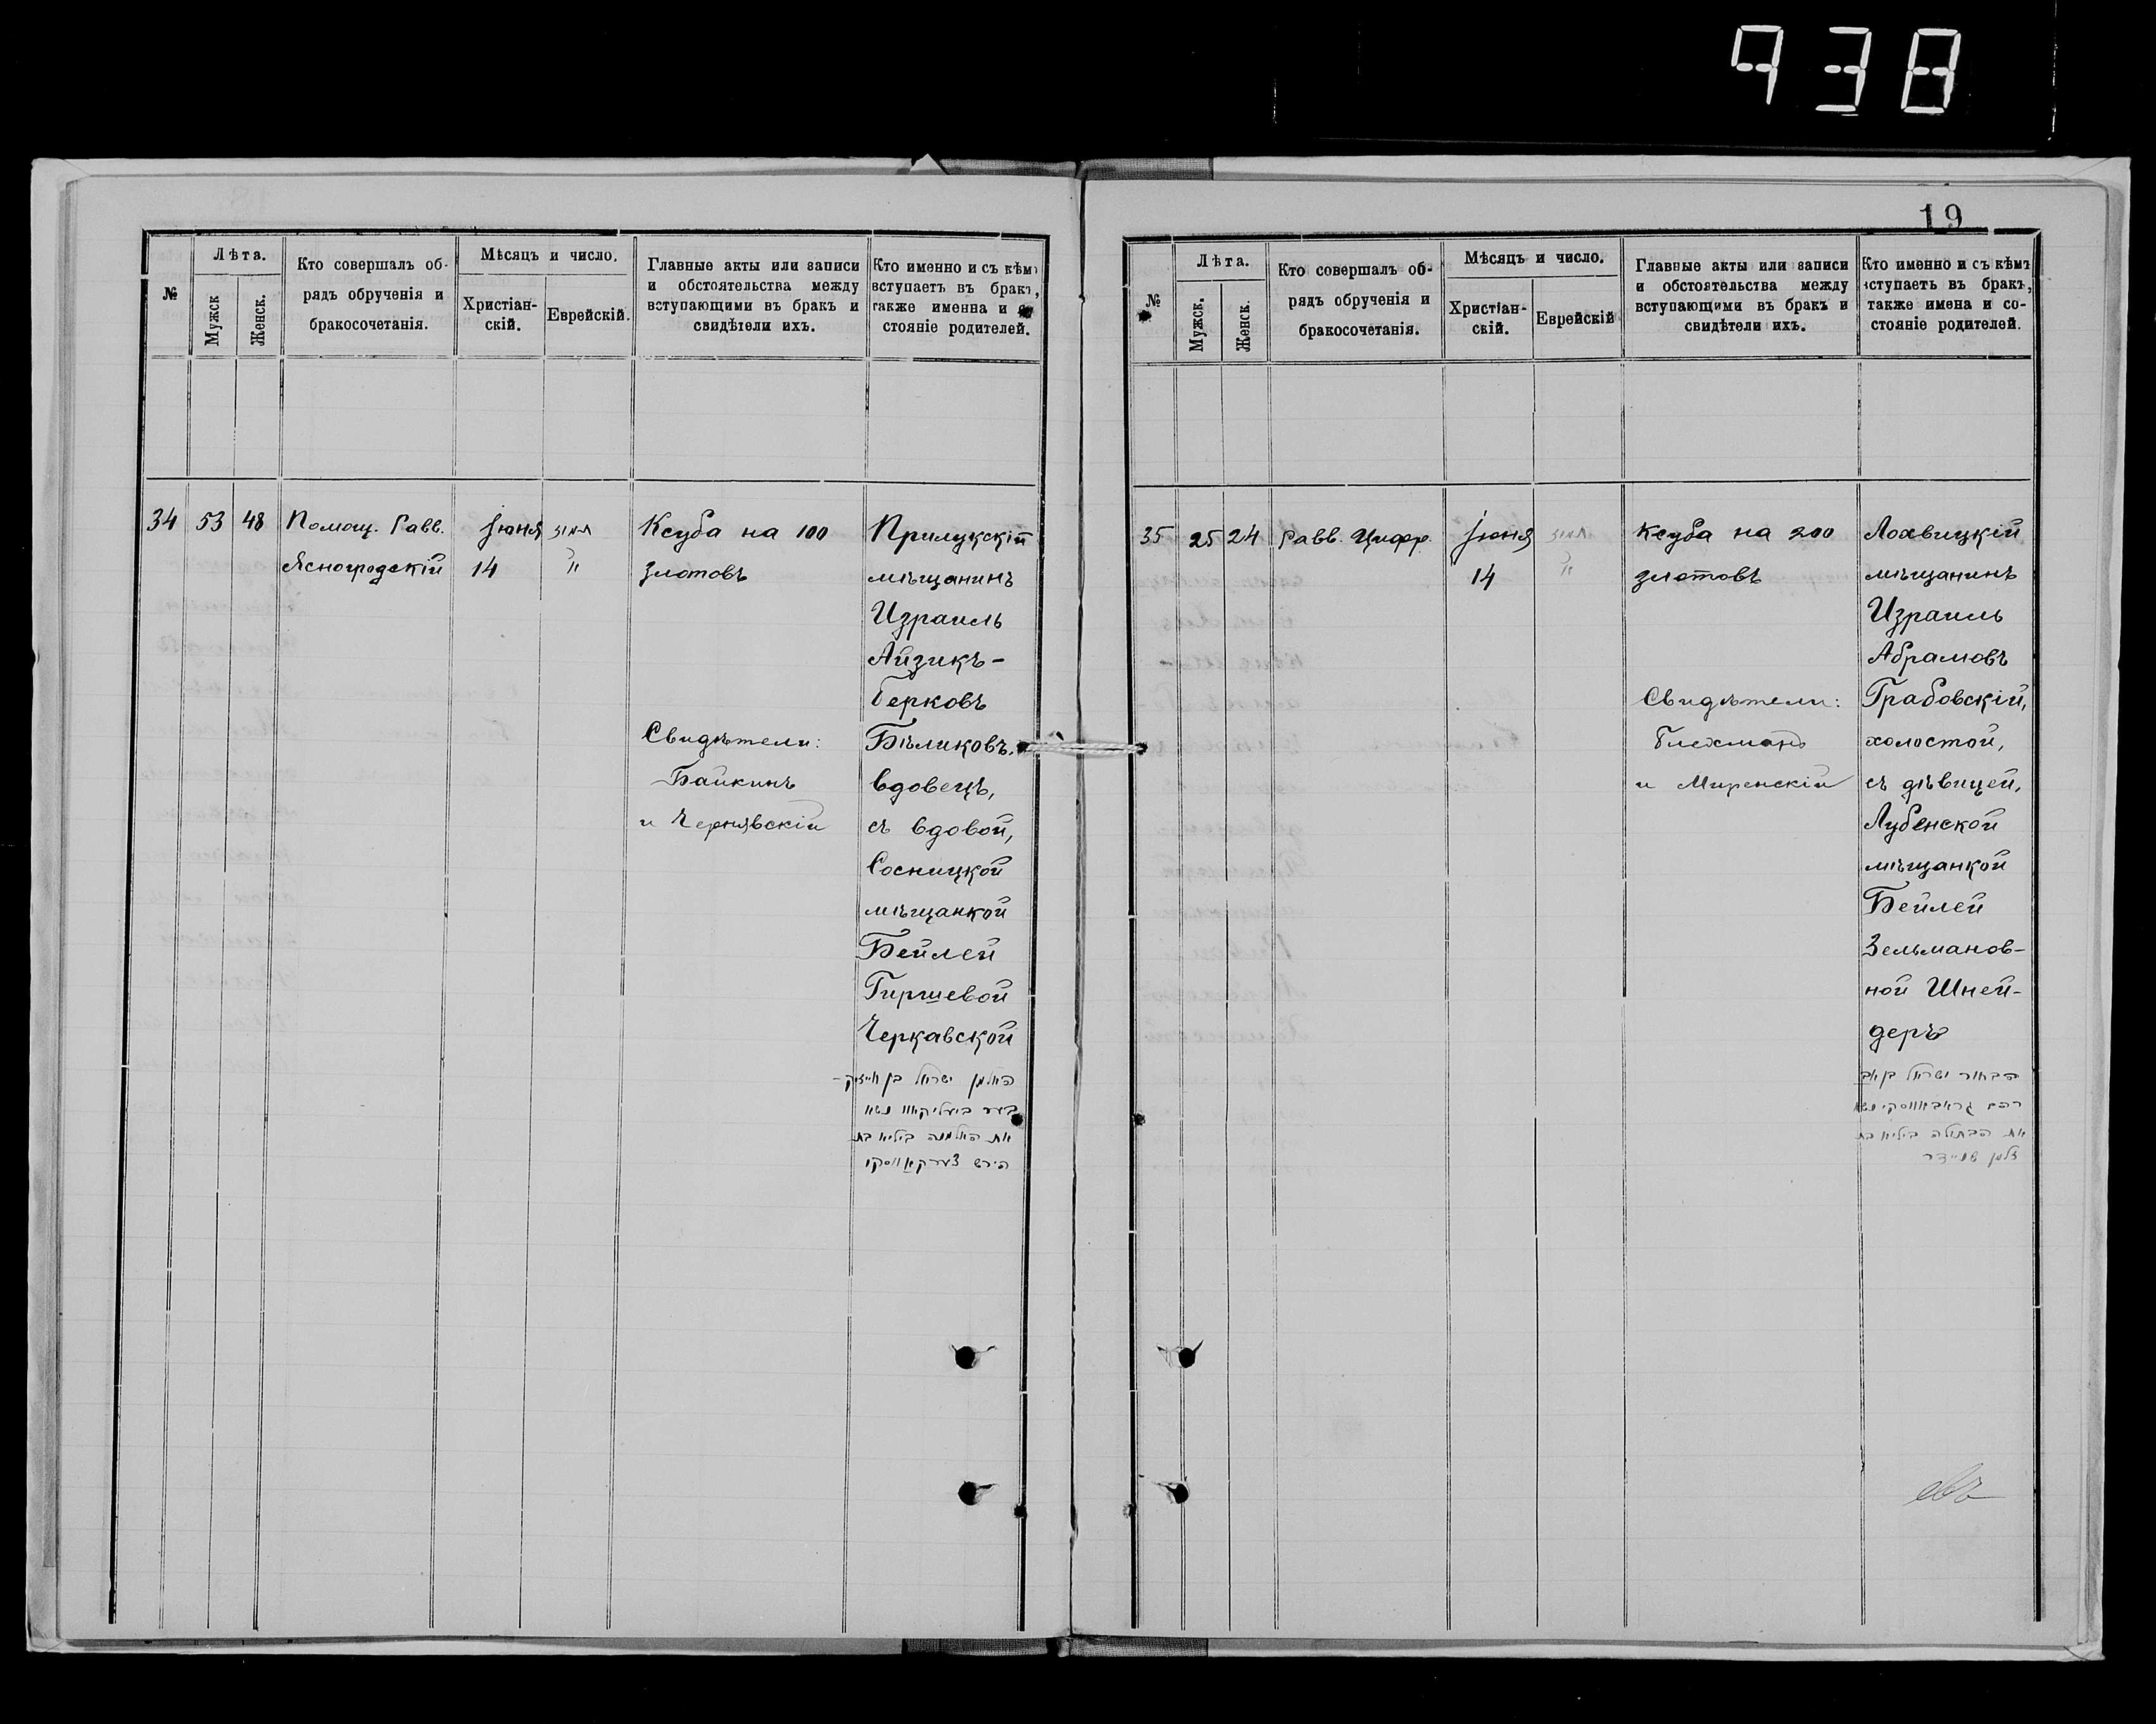 938
№
Лѣта.
Мужск
Женск.
Кто совершалъ об-
рядъ обрученія и
бракосочетанія.
Мѣсяцъ и число.
Христіан-
скій.
Еврейскій.
Главные акты или записи
и обстоятельства между
вступающими въ бракъ и
свидѣтели ихъ.
Кто именно и съ кѣмъ
вступаетъ въ бракъ,
также именна и со-
стояніе родителей.
34
53
48
Помощ. Равв.
Ясногродскій
Іюня
14
תמוז
Ксуба на 100
злотовъ
Свидѣтели:
Байкинъ
и Чернявскій
Прилукскій
мѣщанинъ
Израиль
Айзикъ-
Берковъ
Бѣликовъ,
вдовецъ,
съ вдовой,
Сосницкой
мѣщанкой
Бейлей
Гиршевой
Черкавской
האלמן ישראל בן אייזיק-
בער ביעליקאוו נשא
את האלמנה ביילא בת
הירש צערקאווסקי
19
№
Лѣта.
Мужск.
Женск.
Кто совершалъ об-
рядъ обрученія и
бракосочетанія.
Мѣсяцъ и число.
Христіан-
скій.
Еврейскій
Главные акты или записи
и обстоятельства между
вступающими въ бракъ и
свидѣтели ихъ.
Кто именно и съ кѣмъ
вступаетъ въ бракъ,
также имена и со-
стояніе родителей.
35
25
24
Равв. Цифр.
Іюня
14
תמוז
Ксуба на 200
злотовъ
Свидѣтели:
Блехманъ
и Миренскій
Лохвицкій
мѣщанинъ
Израиль
Абрамовъ
Грабовскій,
холостой,
съ дѣвицей,
Лубенской
мѣщанкой
Бейлей
Зельманов-
ной Шней-
деръ
הבחור ישראל בן אב
רהם גראבאווסקי נשא
את הבתולה ביילא בת
זלמן שניידר